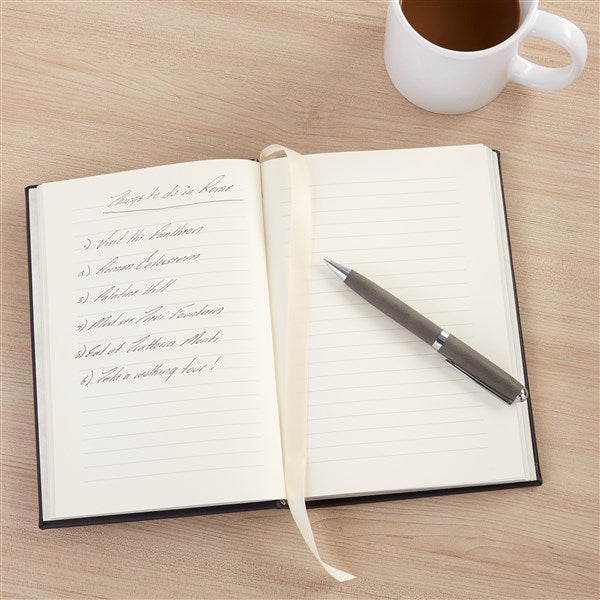 Things to do in Rome
1) Visit the Panthron
2) Roman Colosseum
3) Palatine Hill
4) Must see Trevi Fountain
5) Eat at Trattoria Monti
6) Take a walking tour!